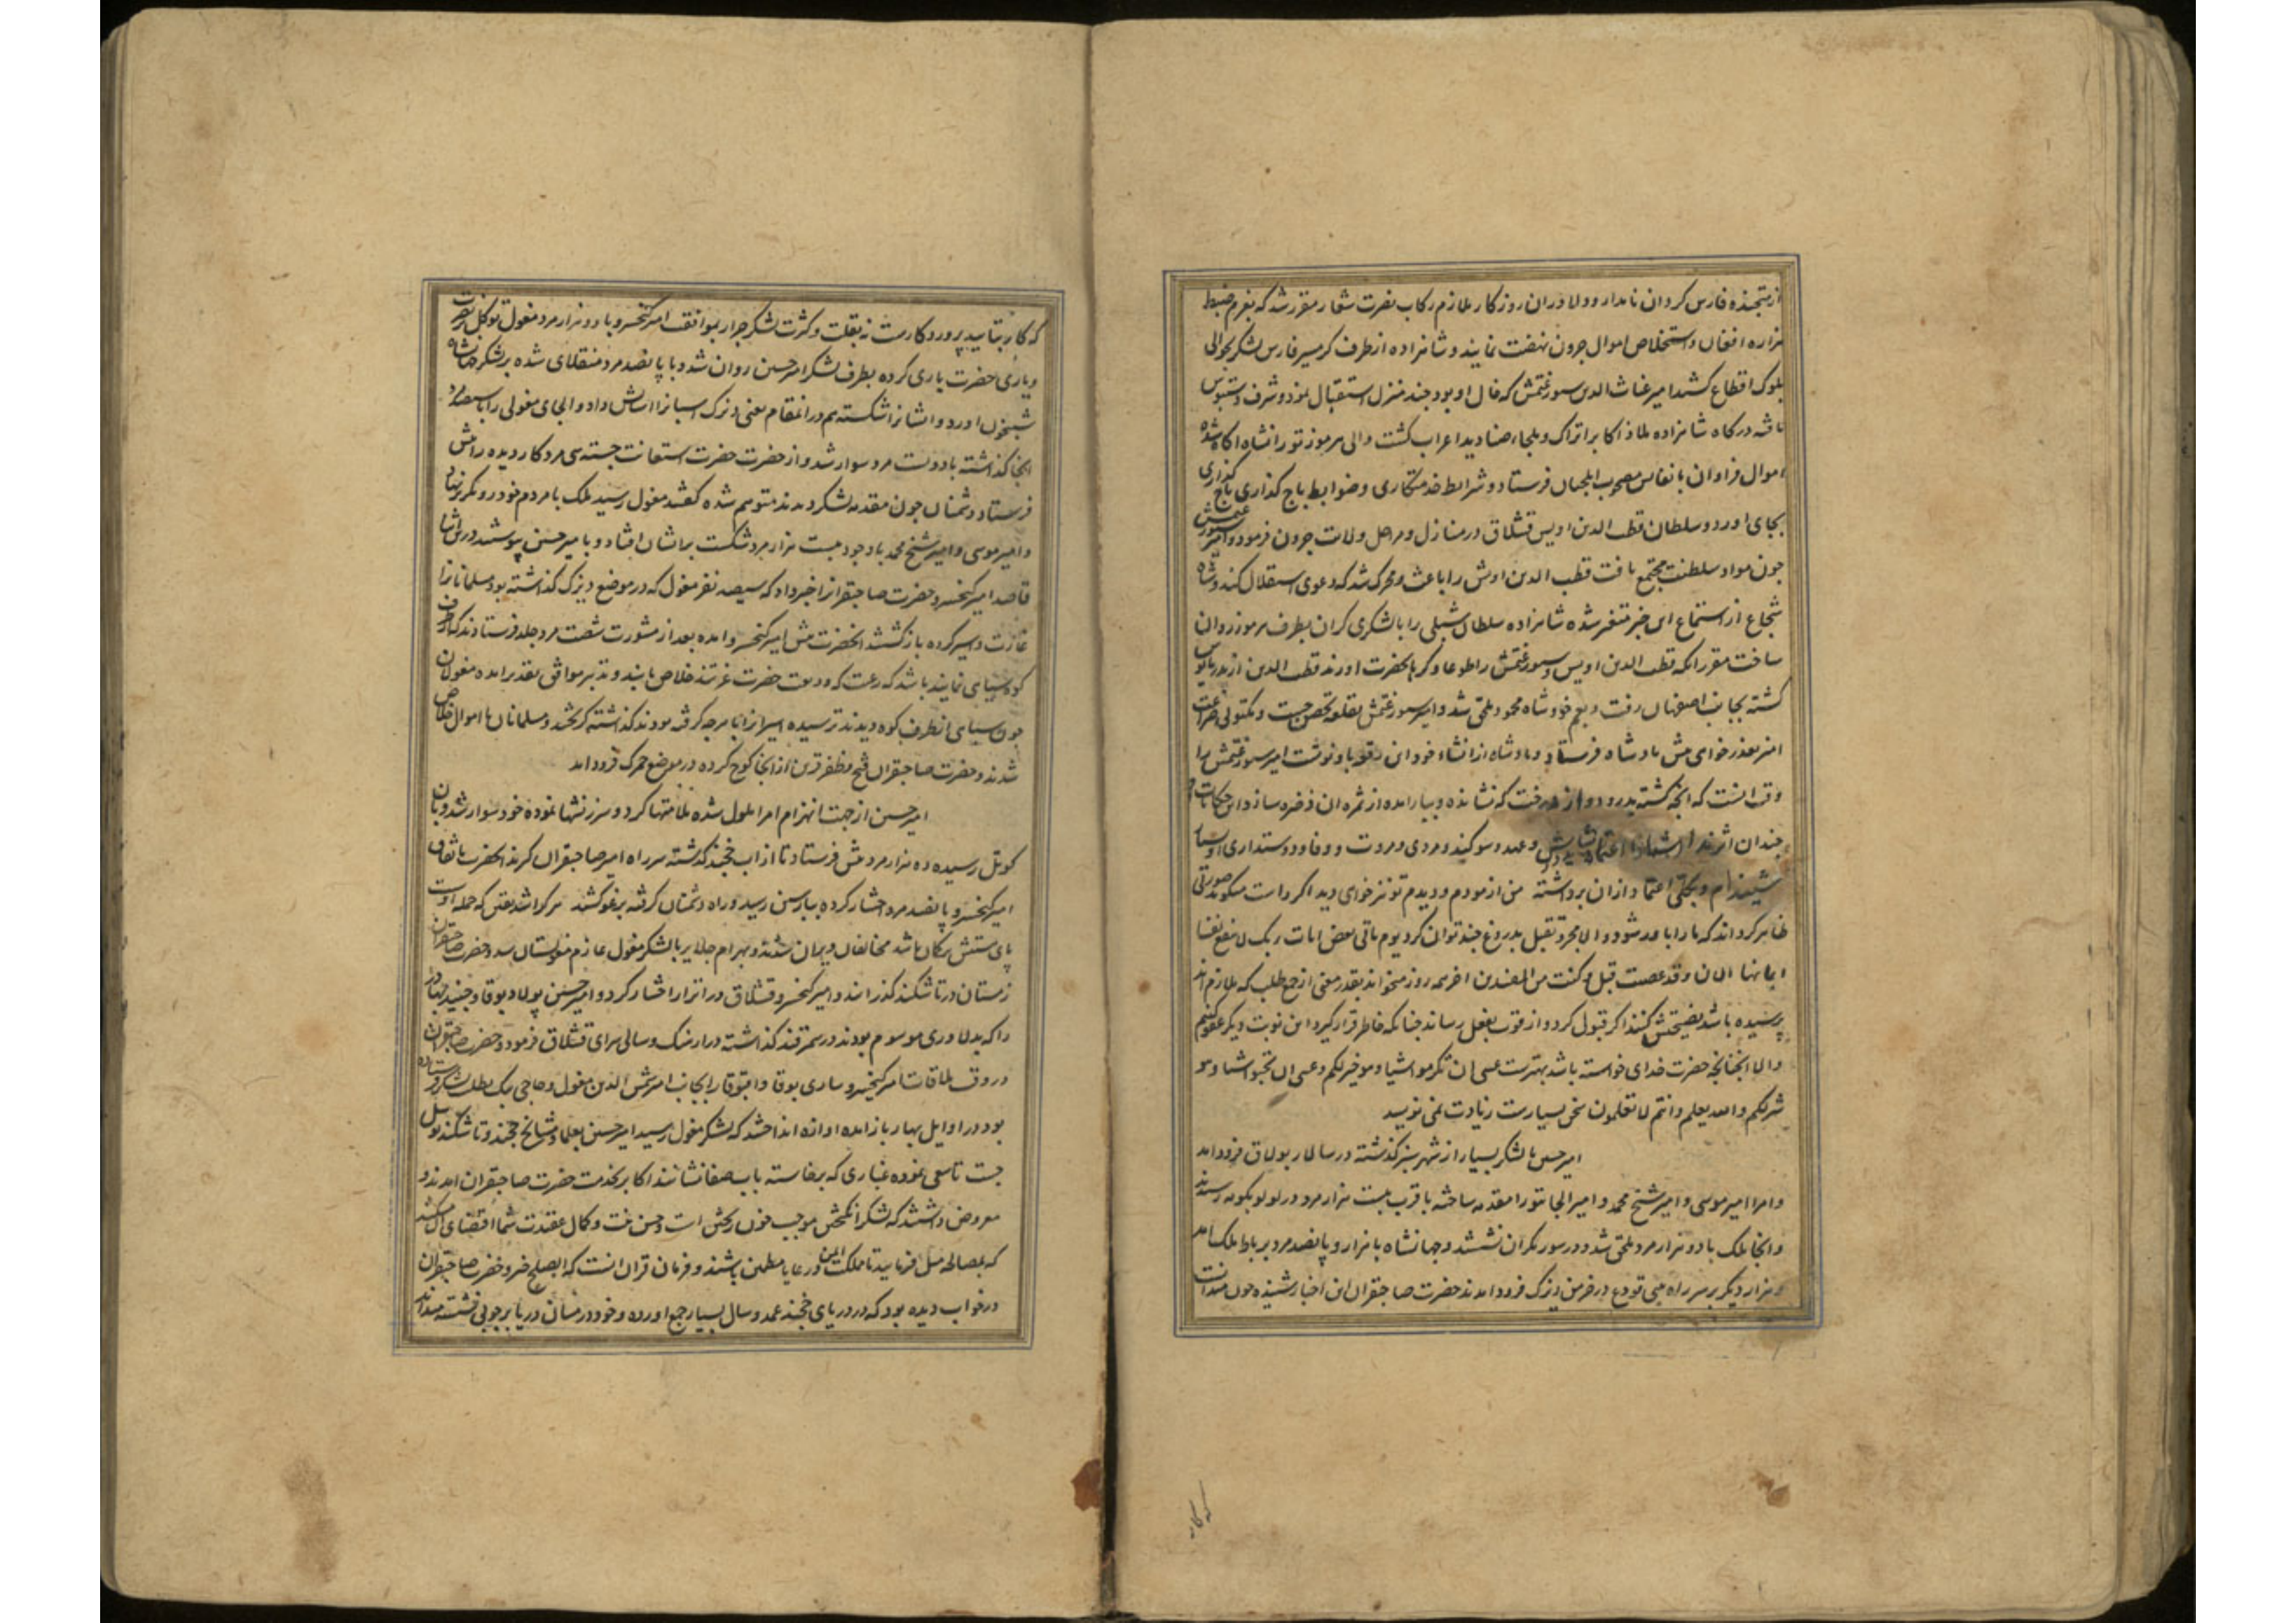 از متجنده فارس کردان نامدار و دلاوران روزکار ملازم رکاب نصرت شعار مقرر شد که بعزم ضبط
هزاره افغان و استخلاص اموال جرون نهضت نمایند و شاهزاده از طرف کرمسیر فارس لشکر بحوالی
بلوک اقطاع کشید امیر غیاث الدین سیورغتمش که خال او بود چند منزل استقبال نمود و شرف دستبوس
یافته درکاه شاهزاده ملاذ اکابر اتراک و ملجاء صنادید اعراب کشت والی هرموز تورانشاه اکاه شده
اموال فراوان با نفایس مصحوب ایلچیان فرستاد و شرایط خدمتکاری و ضوابط باج کذاری
بجای اورد و سلطان قطب الدین اویس قشلاق در منازل و مراحل ولایت جرون فرمود و امیر سیورغتمش
چون مواد سلطنت مجتمع یافت قطب الدین اویس را باعث و محرک شد که دعوی استقلال کند و شاه
شجاع از استماع این خبر متغیر شده شاهزاده سلطان شبلی را با لشکری کران بطرف هرموز روان
ساخت مقرر انکه قطب الدین اویس و سیورغتمش را طوعا و کرها بحضرت اورند قطب الدین از پدر مایوس
کشته بجانب اصفهان رفت و بعم خود شاه محمود ملحق شد و امیر سیورغتمش بقلعه تحصن جست و مکتوبی
امیر بعذر خواهی پیش پادشاه فرستاد و پادشاه از انشاء خود این رقعه باو نوشت امیر سیورغتمش را
وقت انست که انچه کشته بدرود و از درخت که نشانده و ببار امده از ثمره ان ذخیره سازد این حکایات
چندان اثر ندارد اعتماد و عهد و سوکند و مردی و مروت و وفا و دوستداری او بسیار
شنیده‌ام و بکلی اعتماد از ان برداشته من ازمودم و دیدم تو نیز خواهی دید اکر راست میکوید صورتی
ظاهر کرداند که ما را باور شود و الا بمجرد تقبل بدروغ چند توان کرد یوم یاتی بعض ایات ربک لا ینفع نفسا
ایمانها الان و قد عصیت قبل و کنت من المفسدین اخر همه روز میخواند بقدر معنی از جمع طلب که ملازم اند
پرسیده باشد نصیحتش کنند اکر قبول کرد و از قوت بفعل رساند چنانکه خاطر قرار کیرد این نوبت دیکر عفو کنیم
والا انچنانچه حضرت خدای خواسته باشد بهترست عسی ان تکرهوا شیئا و هو خیر لکم و عسی ان تحبوا شیئا و هو
شر لکم و الله یعلم و انتم لا تعلمون سخن بسیارست زیادت نمی نویسد
امیر حسین با لشکر بسیار از شهر سبز کذشته در سالار بولاق فرود امد
و امرا امیر موسی و امیر شیخ محمد و امیر الجایتو را مقدمه ساخته با قرب بیست هزار مرد در رسیدند
و انجا ملک با دو هزار مرد ملحق شد و در سوزنکران نشستند و جهانشاه با هزار و پانصد مرد بر رباط ملک امد
و هزار دیکر بر سر راه در خرمن دیزک فرود امدند حضرت صاحبقران این اخبار شنیده چون میدانست
که کار
که کار بتایید پروردکارست نه بقلت و کثرت لشکر جرار بموافقت امیر کیخسرو با دو هزار مرد مغول توکل بر نصرت
و یاری حضرت باری کرده بطرف لشکر امیر حسین روان شد و با پانصد مرد منقلای شده بر لشکر جهانشاه
شبیخون اورد و ایشانرا شکسته هم در انمقام یعنی دیزک اسبانرا اسایش داد و الجای مغولی را با سیصد مرد
انجا کذاشته با دویست مرد سوار شد و از حضرت حضرت استعانت جسته سی مرد کار دیده را پیش
فرستاد دشمنان چون مقدمه لشکر دیدند متوهم شده کفتند مغول رسید ملک با مردم خود رو بکریز نهاد
و امیر موسی و امیر شیخ محمد با وجود بیست هزار مرد شکست بر ایشان افتاد و با میر حسین پیوستند درین اثنا
قاصد امیر کیخسرو حضرت صاحبقرانرا خبر داد که سیصد نفر مغول که در موضع دیزک کذاشته بود مسلمانانرا
غارت و اسیر کرده بازکشتند انحضرت پیش امیر کیخسرو امده بعد از مشورت شصت مرد جلد فرستادند که از طرف
کوه سیاهی نمایند باشد که رعیت که ودیعت حضرت عزتند خلاص یابند و تدبیر موافق تقدیر امده مغولان
چون سیاهی انطرف کوه دیدند ترسیده اسیرانرا با هرچه کرفته بودند کذاشته کریختند و مسلمانان با اموال خلاص
شدند و حضرت صاحبقران فتح و ظفر قرین از انجا کوچ کرده در موضع حمرک فرود امد
امیر حسین از جهت انهزام امرا ملول شده ملامتها کرد و سرزنشها نموده خود سوار شد و بان
کوتل رسیده ده هزار مرد پیش فرستاد تا از اب خجند کذشته سر راه امیر صاحبقران کیرند انحضرت باتفاق
امیر کیخسرو پانصد مرد اختیار کرده ببارسین رسید و راه دشمنان کرفته برغو کشیدند هرکرا شد یقین که حمله اوست
پای سستش بکمان باشد مخالفان ویران شدند و بهرام جلایر با لشکر مغول عازم مغولستان شد و حضرت صاحبقران
زمستان در تاشکند کذرانند و امیر کیخسرو قشلاق در اترار اختیار کرد و امیر حسین پولاد بوقا و جنید بهادر
را که بدلاوری موسوم بودند در سمرقند کذاشته در ارهنک و سالی سرای قشلاق فرمود و حضرت صاحبقران
در وقت ملاقات امیر کیخسرو ساری بوقا و اقبوقا را بجانب امیر شمس الدین مغول و حاجی بیک بطلب لشکر فرستاده
بود در اوایل بهار باز امده اوازه انداختند که لشکر مغول رسید امیر حسین بعلما و مشایخ خجند و تاشکند توسل
جست تا سعی نموده غباری که برخاسته باب صفا نشانند اکابر بخدمت حضرت صاحبقران امدند و
معروض داشتند که لشکر انکیختن موجب خون ریختن است و حسن نیت و کمال عقیدت شما اقتضای ان میکند
که بمصالحه میل فرمایید تا مملکت ایمن و رعایا مطمئن باشند و فرمان قران انست که الصلح خیر و حضرت صاحبقران
در خواب دیده بود که در دریای خجند عمد و سال بسیار جمع اورده و خود در میان دریا بر چوبی نشسته میداند